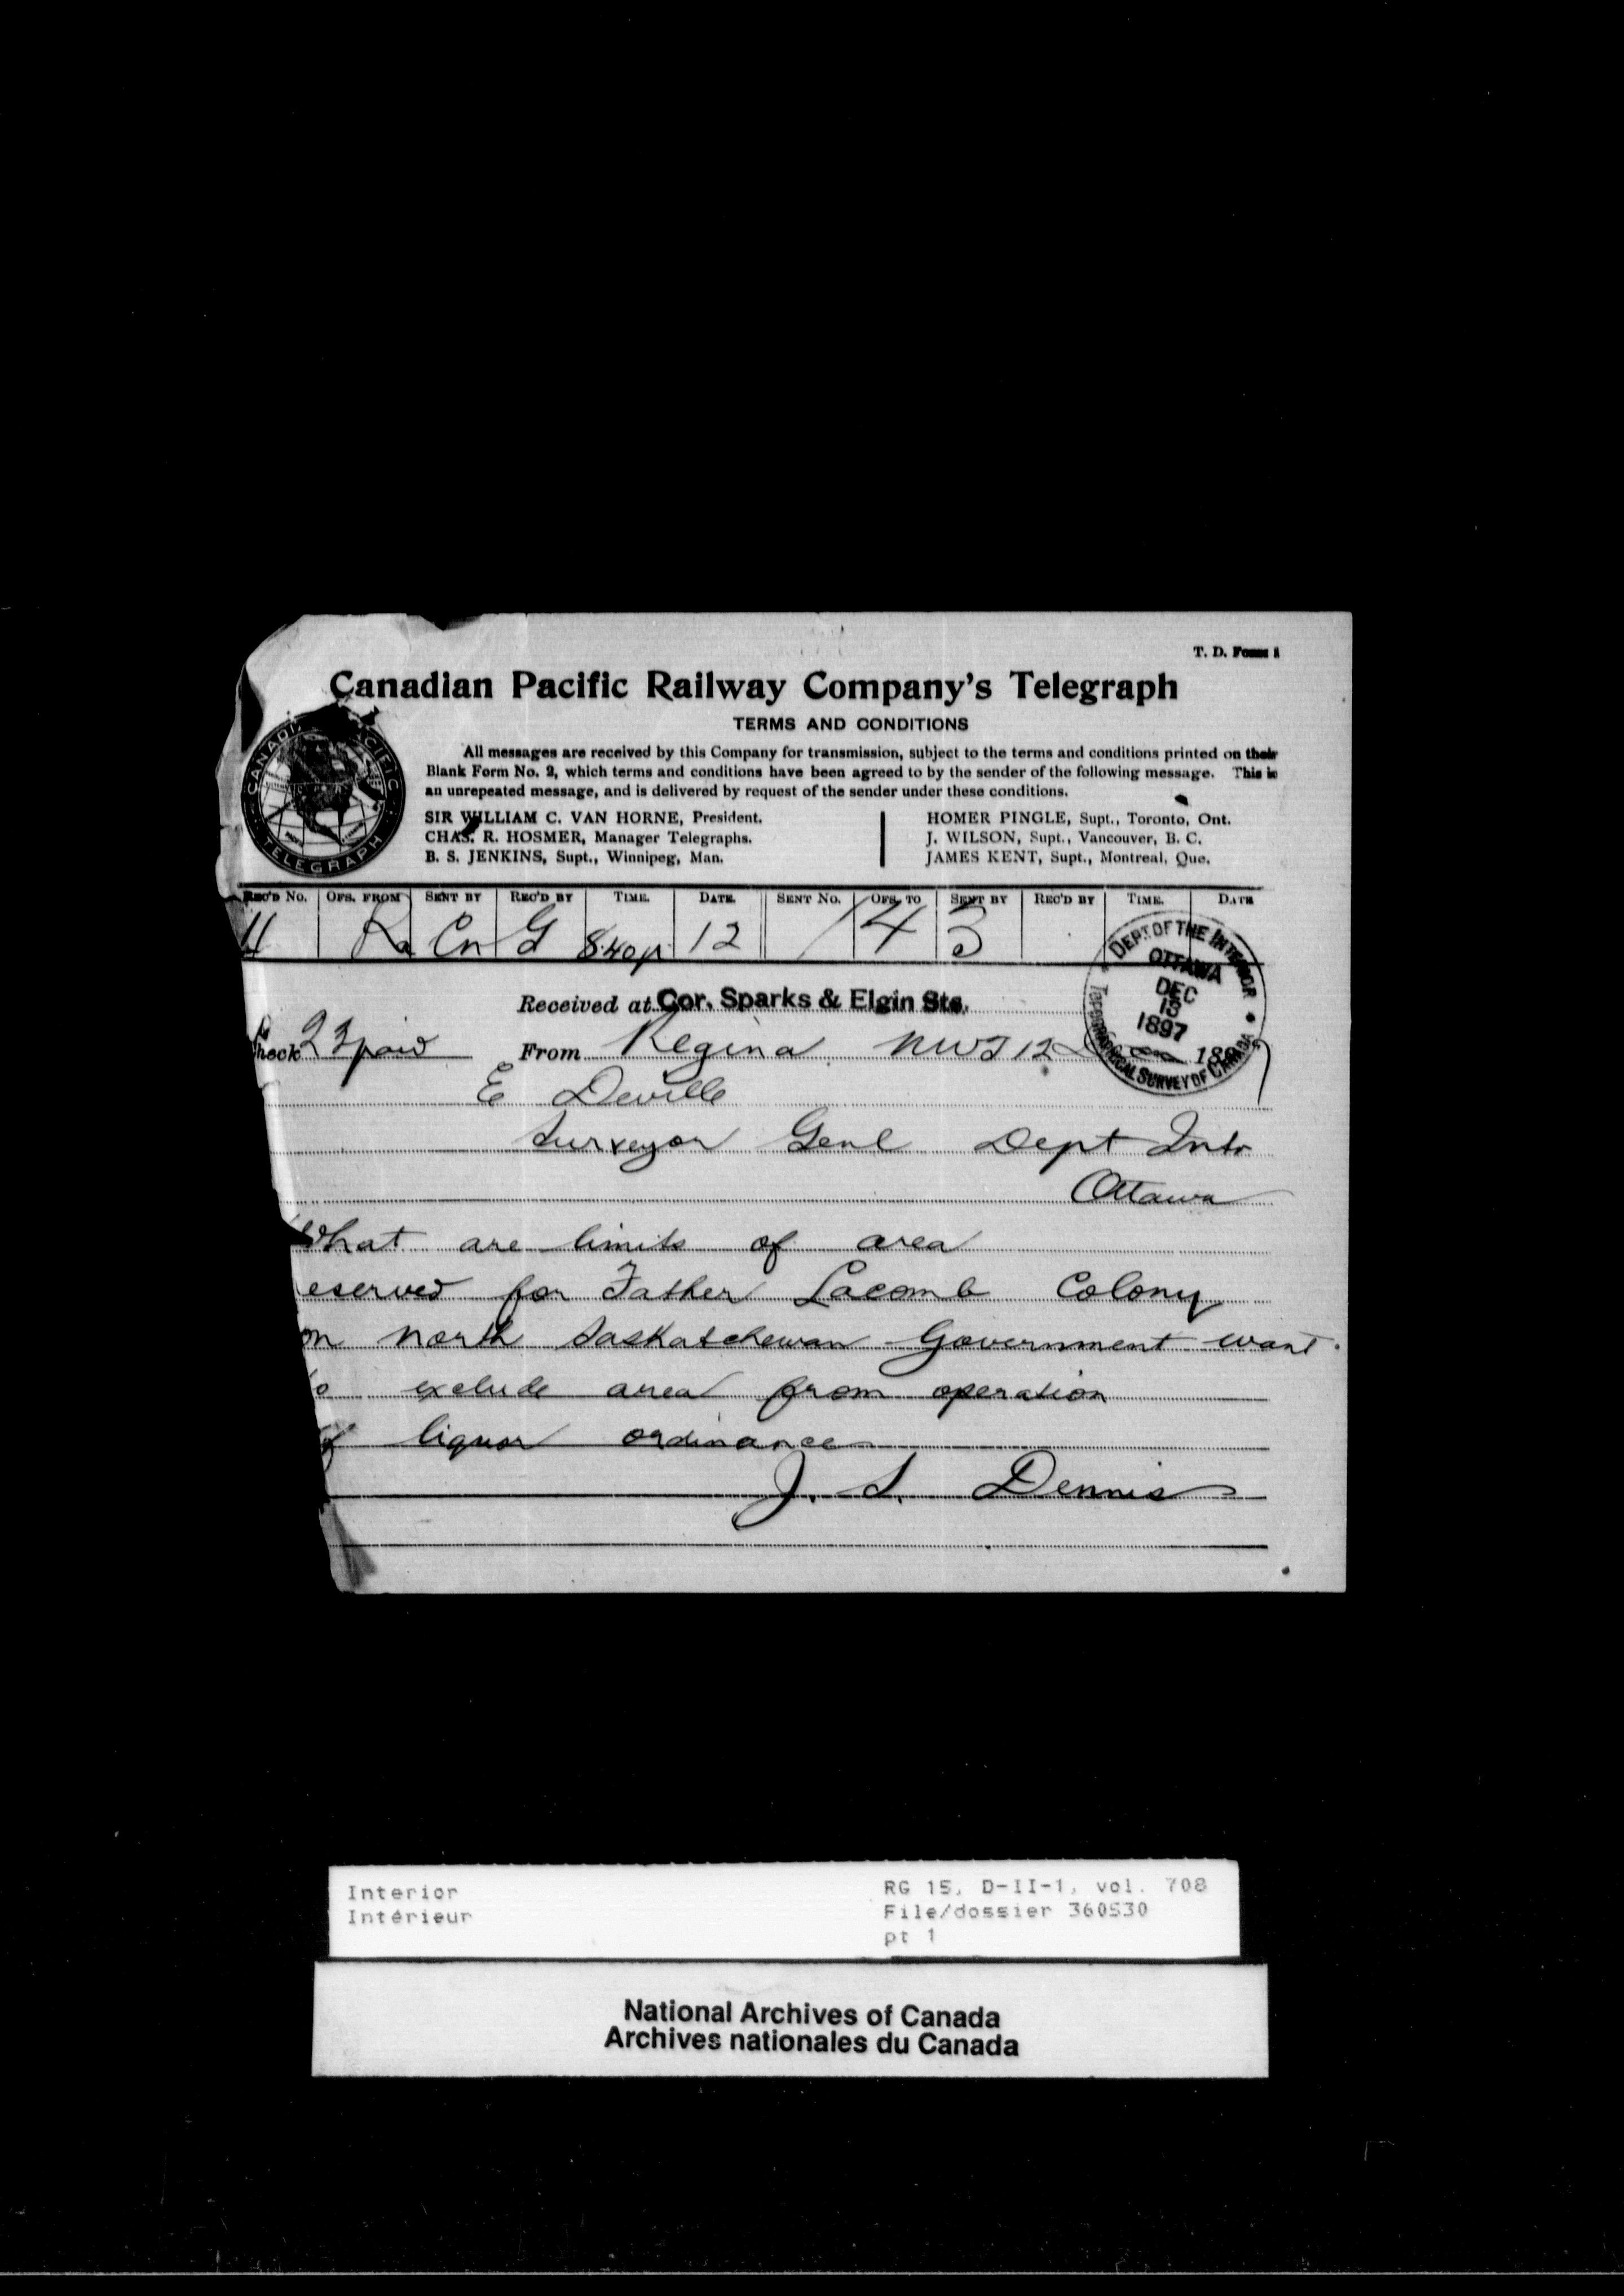 T. D. Form 1
Canadian Pacific Railway Company's Telegraph
TERMS AND CONDITIONS
All messages are received by this Company for transmission, subject to the terms and conditions printed on their
Blank Form No. 2, which terms and conditions have been agreed to by the sender of the following message. This is
an unrepeated message, and is delivered by request of the sender under these conditions.
SIR WILLIAM C. VAN HORNE, President.
CHAS. R. HOSMER, Manager Telegraphs.
B. S. JENKINS, Supt., Winnipeg, Man.
HOMER PINGLE, Supt., Toronto, Ont.
J. WILSON, Supt., Vancouver, B. C.
JAMES KENT, Supt., Montreal, Que.
TELEGRAPH
REC'D No. OFS. FROM SENT BY REC'D BY TIME. DATE. SENT No. OFS. TO SENT BY REC'D BY TIME. DATE
Ra Cn G 8.40p 12
DEPT. OF THE INTERIOR
OTTAWA
DEC
13
1897
TOPOGRAPHICAL SURVEY OF CANADA
Received at Cor. Sparks & Elgin Sts.
heck 23 paid From Regina NWT 12 1897
E Deville
Surveyor Genl Dept Intr
Ottawa
What are limits of area
eserved for Father Lacomb Colony
on north Saskatchewan Government want
to exclude area from operation
of liquor ordinance
J. S. Dennis
Interior
Intérieur
RG 15, D-II-1, vol. 708
File/dossier 360530
pt 1
National Archives of Canada
Archives nationales du Canada